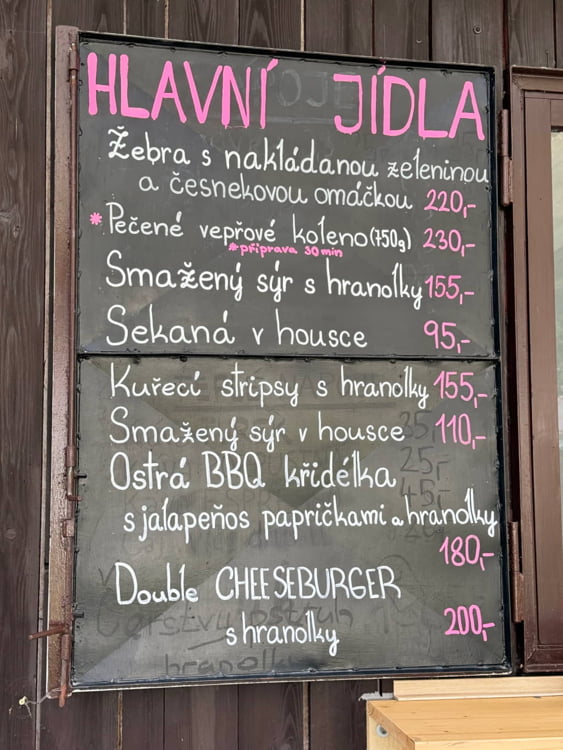 HLAVNÍ JÍDLA
Žebra s nakládanou zeleninou
a česnekovou omáčkou 220,-
*Pečené vepřové koleno (750g) 230,-
*příprava 30 min
Smažený sýr s hranolky 155,-
Sekaná v housce 95,-
Kuřecí stripsy s hranolky 155,-
Smažený sýr v housce 110,-
Ostrá BBQ křidélka
s jalapeños papričkami a hranolky
180,-
Double CHEESEBURGER
200,-
s hranolky